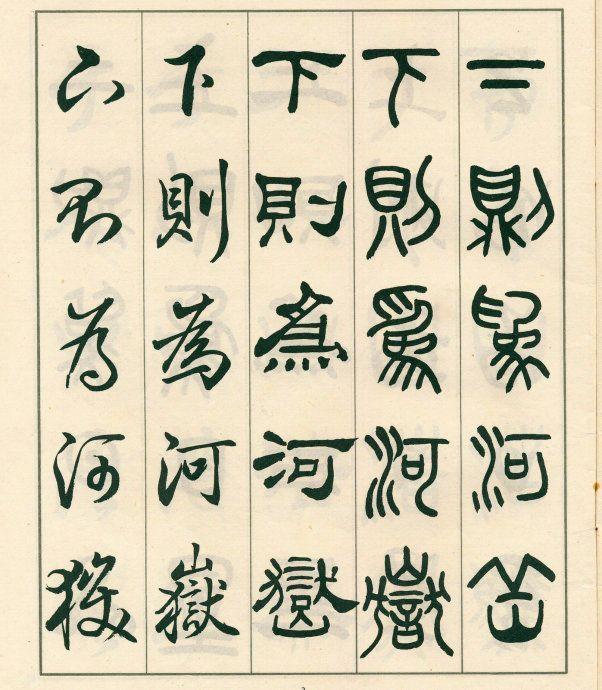 下則為河嶽
下則爲河嶽
下則為河嶽
下則為河嶽
下則為河嶽